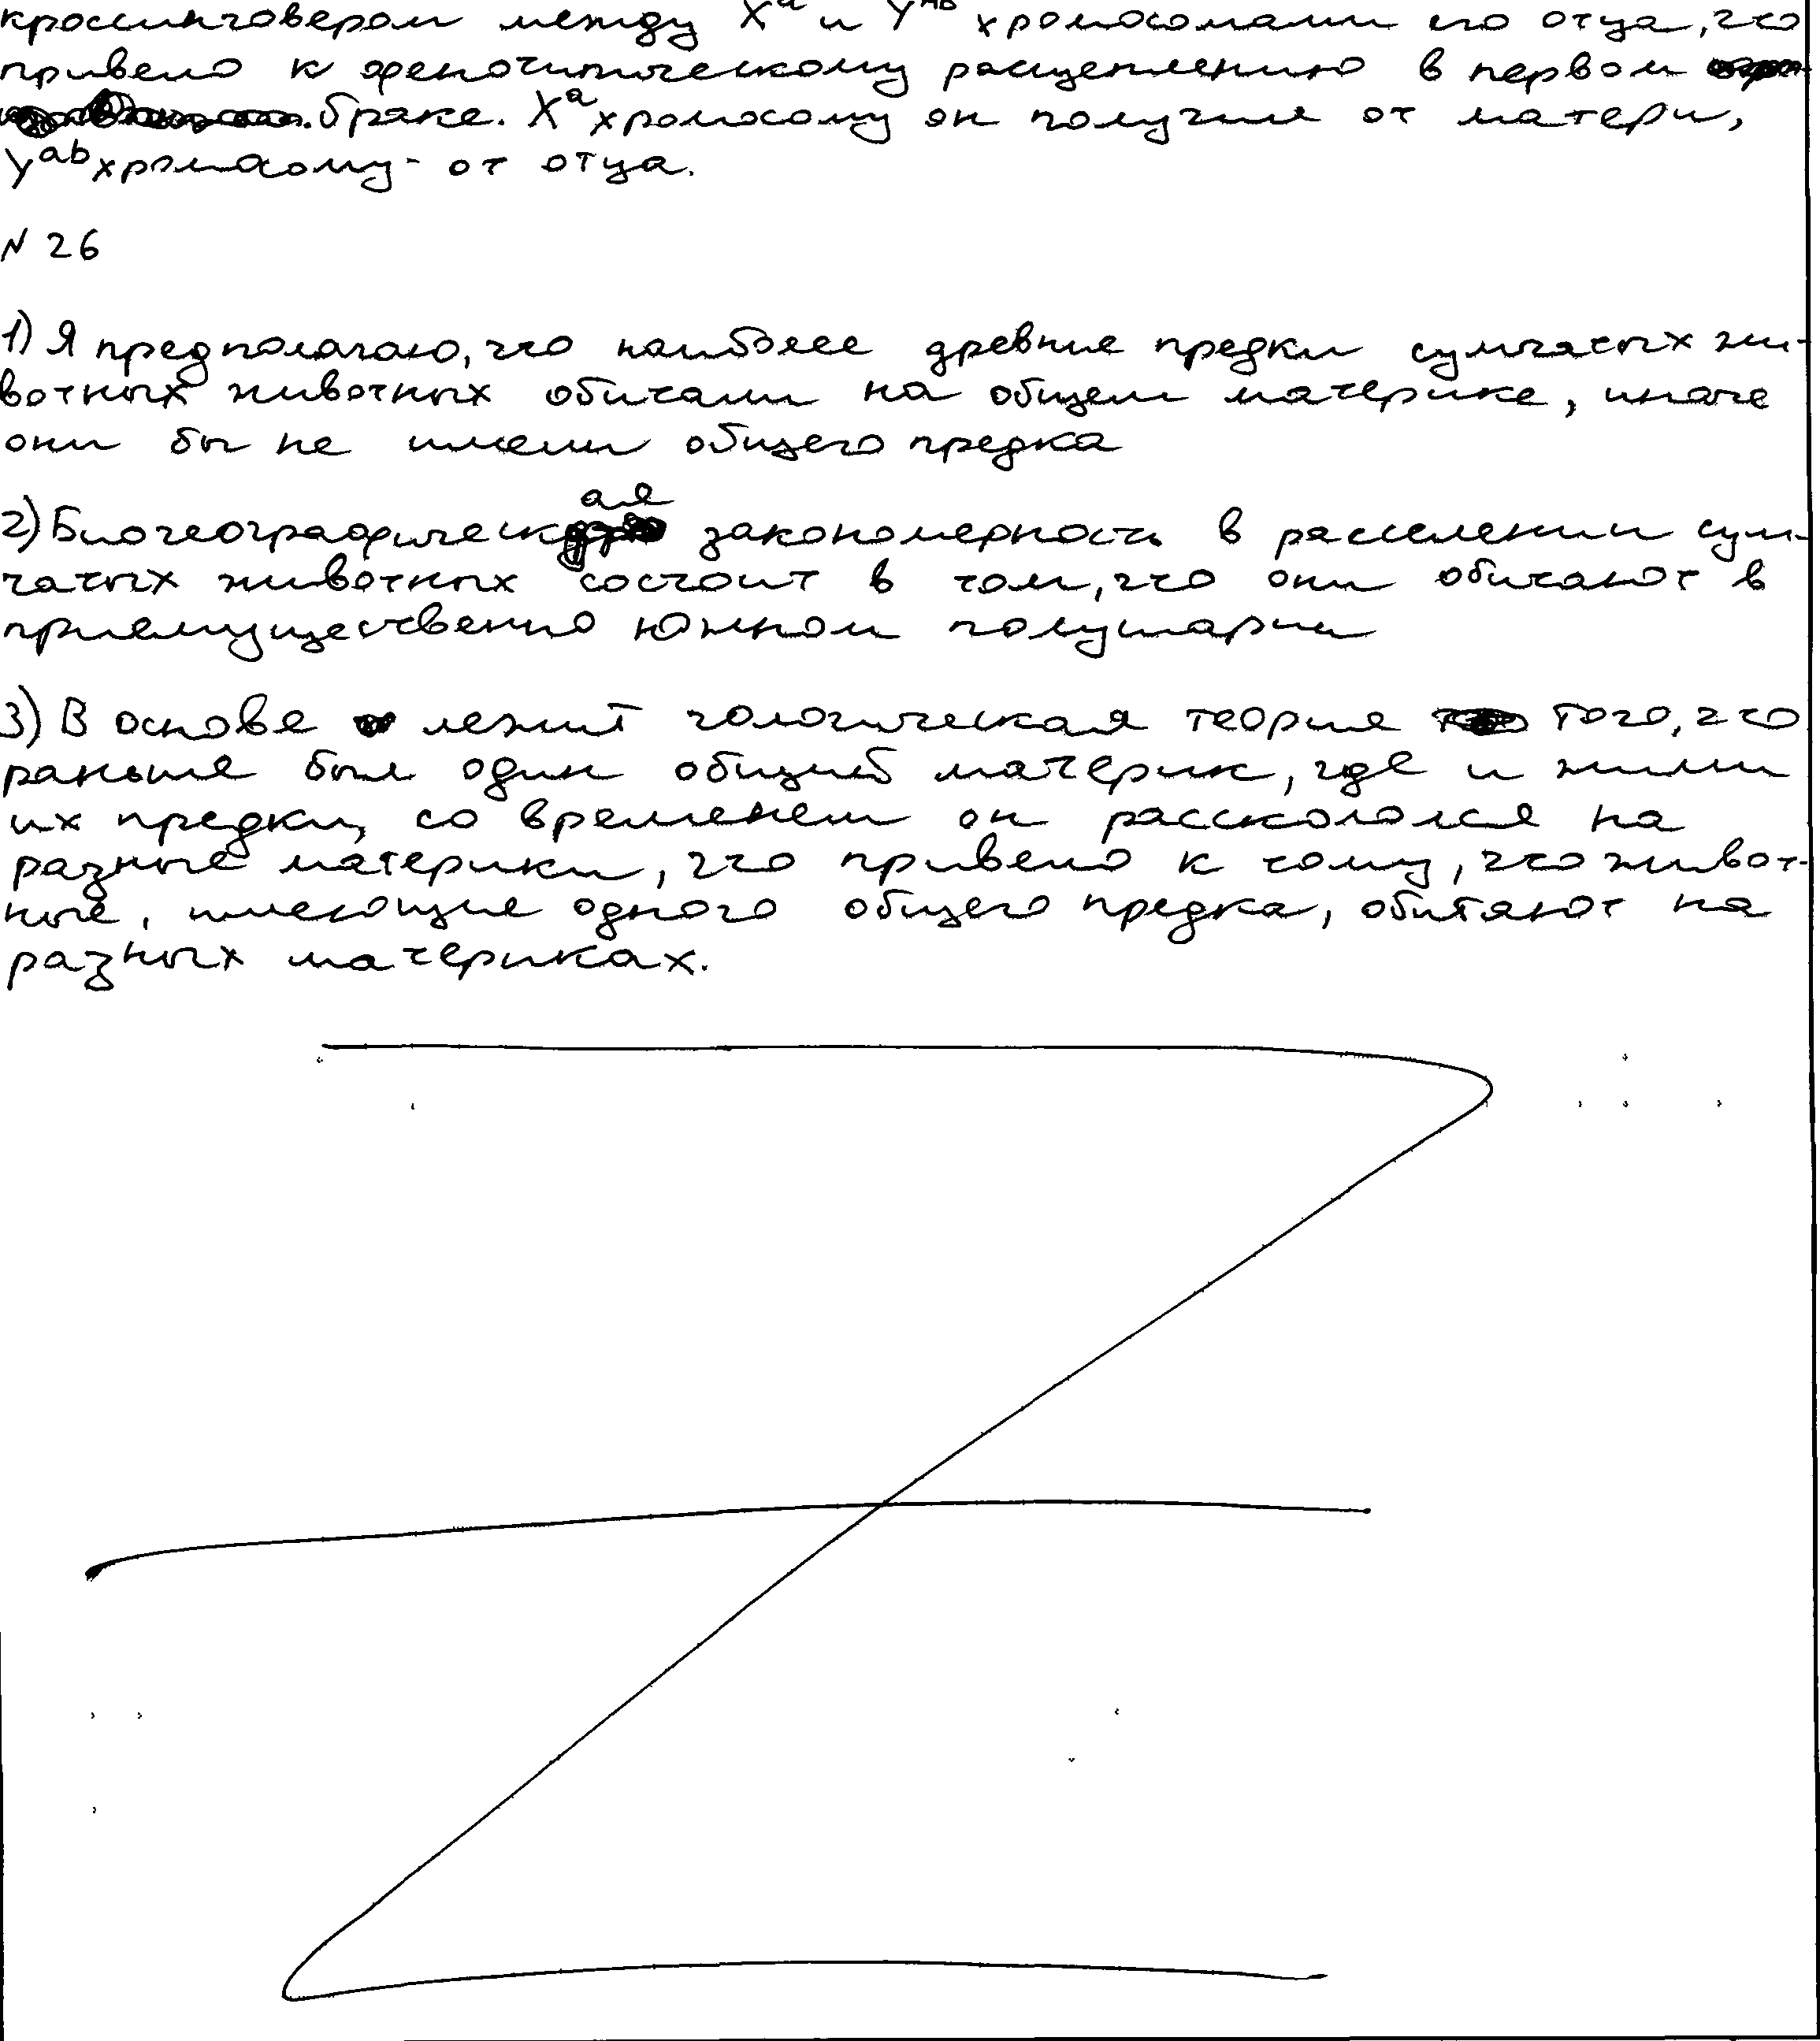 кроссинговером между Xᵃ и Yᴬᵇ хромосомами его отца, что
привело к фенотипическому расщеплению в первом
браке. Xᵃ хромосому он получил от матери,
Yᵃᵇ хромосому - от отца.
N 26
1) Я предполагаю, что наиболее древние предки сумчатых жи-
вотных животных обитали на общем материке, иначе
они бы не имели общего предка
2) Биогеографическая закономерность в расселении сум-
чатых животных состоит в том, что они обитают в
приемущественно южном полушарии
3) В основе лежит гологическая теория того, что
раньше был один общий материк, где и жили
их предки, со временем он расскололся на
разные материки, что привело к тому, что живот-
ные, имеющие одного общего предка, обитают на
разных материках.